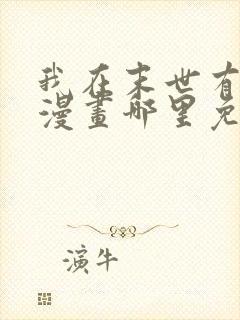 我在末世有
漫畫哪里免
演牛